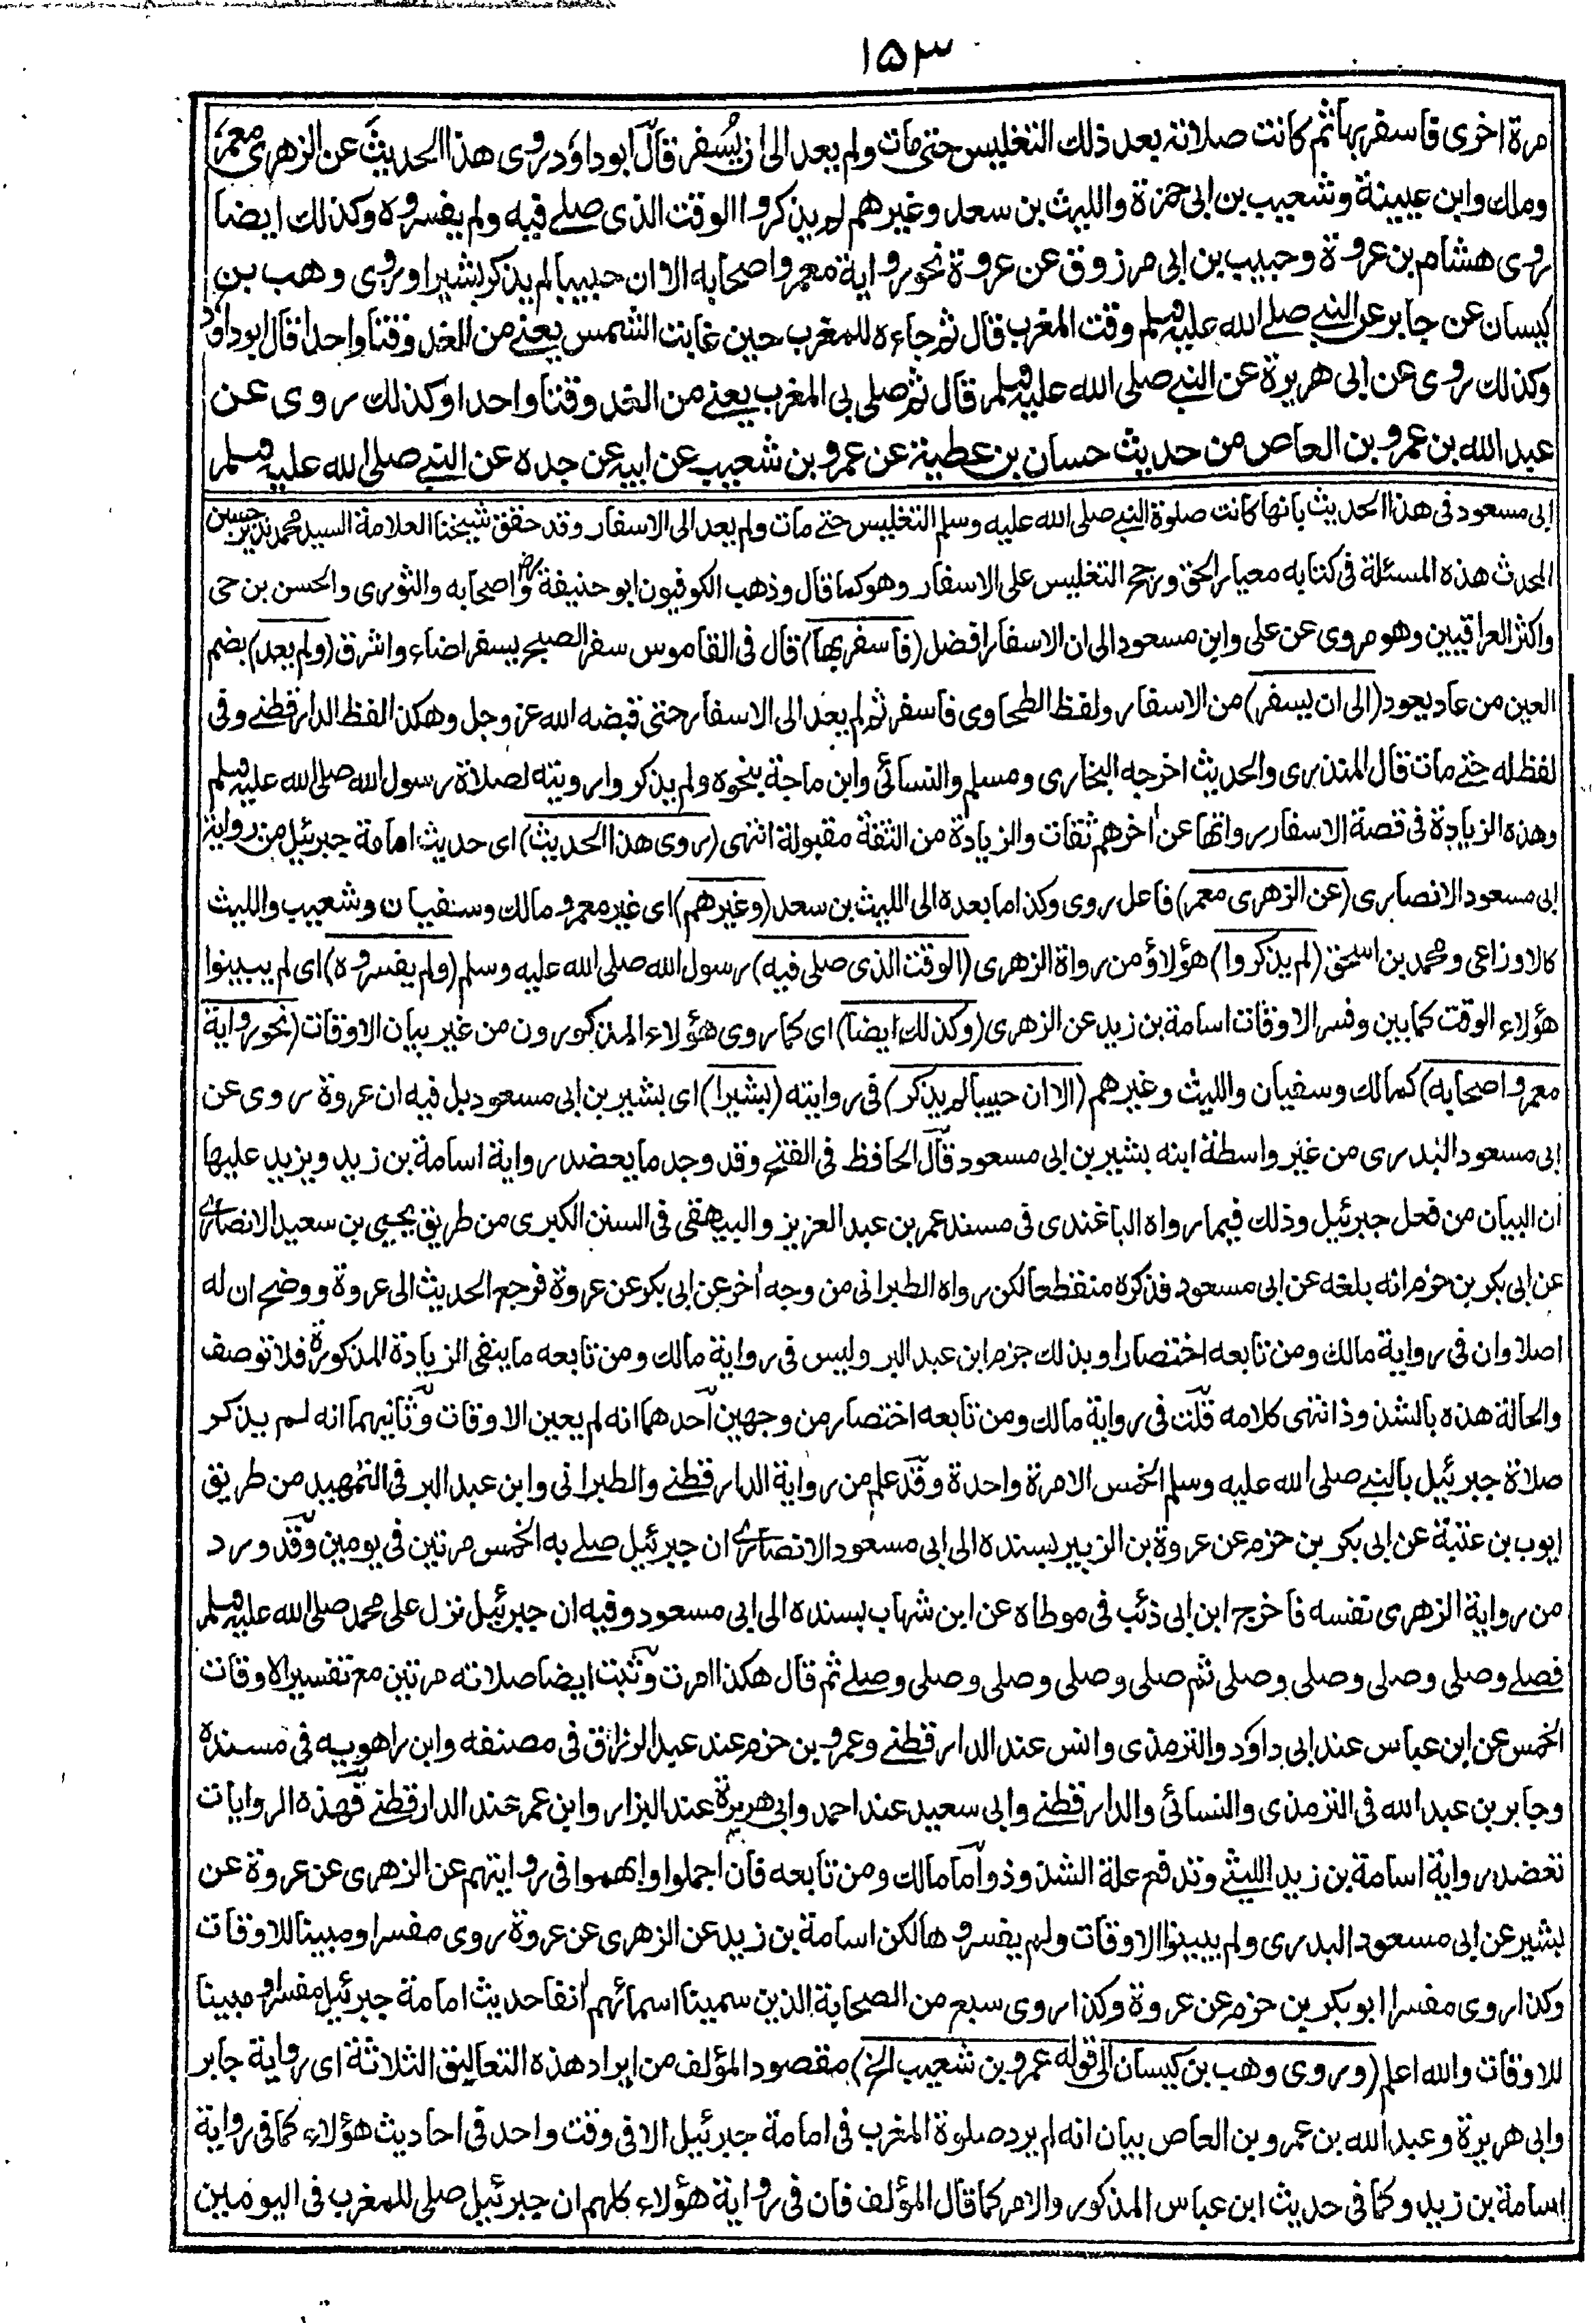 ١٥٣
مرة اخرى فاسفر بها ثم كانت صلاته بعد ذلك التغليس حتى مات ولم يعد الى ان يُسفر قال ابوداؤد روى هذا الحديث عن الزهرى معمر
وملك وابن عيينة وشعيب بن ابى حمزة والليث بن سعد وغيرهم لم يذكروا الوقت الذى صلے فيه ولم يفسروه وكذلك ايضا
روى هشام بن عروة وحبيب بن ابى مرزوق عن عروة نحو رواية معمر واصحابه الا ان حبيبا لم يذكر بشيرا وروى وهب بن
كيسان عن جابر عن النبے صلے الله عليه وسلم وقت المغرب قال ثم جاءه للمغرب حين غابت الشمس يعنے من الغد وقتا واحدا قال ابوداؤد
وكذلك روى عن ابى هريرة عن النبے صلى الله عليه وسلم قال ثم صلى بى المغرب يعنے من الغد وقتا واحدا وكذلك روى عن
عبد الله بن عمرو بن العاص من حديث حسان بن عطية عن عمرو بن شعيب عن ابيه عن جده عن النبے صلى الله عليه وسلم
ابى مسعود فى هذا الحديث بانها كانت صلوة النبے صلى الله عليه وسلم التغليس حتے مات ولم يعد الى الاسفار وقد حقق شيخنا العلامة السيد محمد نذير حسين
المحدث هذه المسئلة فى كتابه معيار الحق ورجح التغليس على الاسفار وهو كما قال وذهب الكوفيون ابو حنيفة رض واصحابه والثورى والحسن بن حى
واكثر العراقيين وهو مروى عن على وابن مسعود الى ان الاسفار افضل (فاسفر بها) قال فى القاموس سفر الصبح يسفر اضاء واشرق (ولم يعد) بضم
العين من عاد يعود (الى ان يسفر) من الاسفار ولفظ الطحاوى فاسفر ثم لم يعد الى الاسفار حتى قبضه الله عز وجل وهكذا لفظ الدارقطنے وفى
لفظ له حتے مات قال المنذرى والحديث اخرجه البخارى ومسلم والنسائى وابن ماجة بنحوه ولم يذكروا رويته لصلاة رسول الله صلى الله عليه وسلم
وهذه الزيادة فى قصة الاسفار رواتها عن اٰخرهم ثقات والزيادة من الثقة مقبولة انتهى (روى هذا الحديث) اى حديث امامة جبرئيل من رواية
ابى مسعود الانصارى (عن الزهرى معمر) فاعل روى وكذا ما بعده الى الليث بن سعد (وغيرهم) اى غير معمر ومالك وسفيان وشعيب والليث
كالاوزاعى ومحمد بن اسحق (لم يذكروا) هؤلاؤ من رواة الزهرى (الوقت الذى صلى فيه) رسول الله صلى الله عليه وسلم (ولم يفسروه) اى لم يبينوا
هؤلاء الوقت كما بين وفسر الاوقات اسامة بن زيد عن الزهرى (وكذلك ايضا) اى كما روى هؤلاء المذكورون من غير بيان الاوقات (نحو رواية
معمر واصحابه) كمالك وسفيان والليث وغيرهم (الا ان حبيبا لم يذكر) فى روايته (بشيرا) اى بشير بن ابى مسعود بل فيه ان عروة روى عن
ابى مسعود البدرى من غير واسطة ابنه بشير بن ابى مسعود قال الحافظ فى الفتح وقد وجد ما يعضد رواية اسامة بن زيد ويزيد عليها
ان البيان من فعل جبرئيل وذلك فيما رواه الباغندى فى مسند عمر بن عبد العزيز والبيهقى فى السنن الكبرى من طريق يحيى بن سعيد الانصارى
عن ابى بكر بن حزم انه بلغه عن ابى مسعود فذكره منقطعا لكن رواه الطبرانى من وجه اٰخر عن ابى بكر عن عروة فرجع الحديث الى عروة ووضح ان له
اصلا وان فى رواية مالك ومن تابعه اختصارا وبذلك جزم ابن عبد البر وليس فى رواية مالك ومن تابعه ما ينفى الزيادة المذكورة فلا توصف
والحالة هذه بالشذوذ انتهى كلامه قلت فى رواية مالك ومن تابعه اختصار من وجهين احدهما انه لم يعين الاوقات وثانيهما انه لم يذكر
صلاة جبرئيل بالنبے صلى الله عليه وسلم الخمس الا مرة واحدة وقد علم من رواية الدارقطنے والطبرانى وابن عبد البر فى التمهيد من طريق
ايوب بن عتبة عن ابى بكر بن حزم عن عروة بن الزبير بسنده الى ابى مسعود الانصارى ان جبرئيل صلے به الخمس مرتين فى يومين وقد ورد
من رواية الزهرى نفسه فاخرج ابن ابى ذئب فى موطاه عن ابن شهاب بسنده الى ابى مسعود وفيه ان جبرئيل نزل على محمد صلى الله عليه وسلم
فصلے وصلى وصلى وصلى وصلى ثم صلى وصلى وصلى وصلى وصلے ثم قال هكذا امرت وثبت ايضا صلاته مرتين مع تفسير الاوقات
الخمس عن ابن عباس عند ابى داؤد والترمذى وانس عند الدارقطنے وعمرو بن حزم عند عبد الرزاق فى مصنفه وابن راهويه فى مسنده
وجابر بن عبد الله فى الترمذى والنسائى والدارقطنے وابى سعيد عند احمد وابى هريرة عند البزار وابن عمر عند الدارقطنے فهذه الروايات
تعضد رواية اسامة بن زيد الليثے وتدفع علة الشذوذ واما مالك ومن تابعه فان اجملوا وابهموا فى روايتهم عن الزهرى عن عروة عن
بشير عن ابى مسعود البدرى ولم يبينوا الاوقات ولم يفسروها لكن اسامة بن زيد عن الزهرى عن عروة روى مفسرا ومبينا للاوقات
وكذا روى مفسرا ابو بكر بن حزم عن عروة وكذا روى سبع من الصحابة الذين سمينا اسمائهم اٰنفا حديث امامة جبرئيل مفسرا ومبينا
للاوقات والله اعلم (وروى وهب بن كيسان الى قوله عمرو بن شعيب الخ) مقصود المؤلف من ايراد هذه التعاليق الثلاثة اى رواية جابر
وابى هريرة وعبد الله بن عمرو بن العاص بيان انه لم يرد صلوة المغرب فى امامة جبرئيل الا فى وقت واحد فى احاديث هؤلاء كما فى رواية
اسامة بن زيد وكما فى حديث ابن عباس المذكور والامر كما قال المؤلف فان فى رواية هؤلاء كلهم ان جبرئيل صلى للمغرب فى اليومين